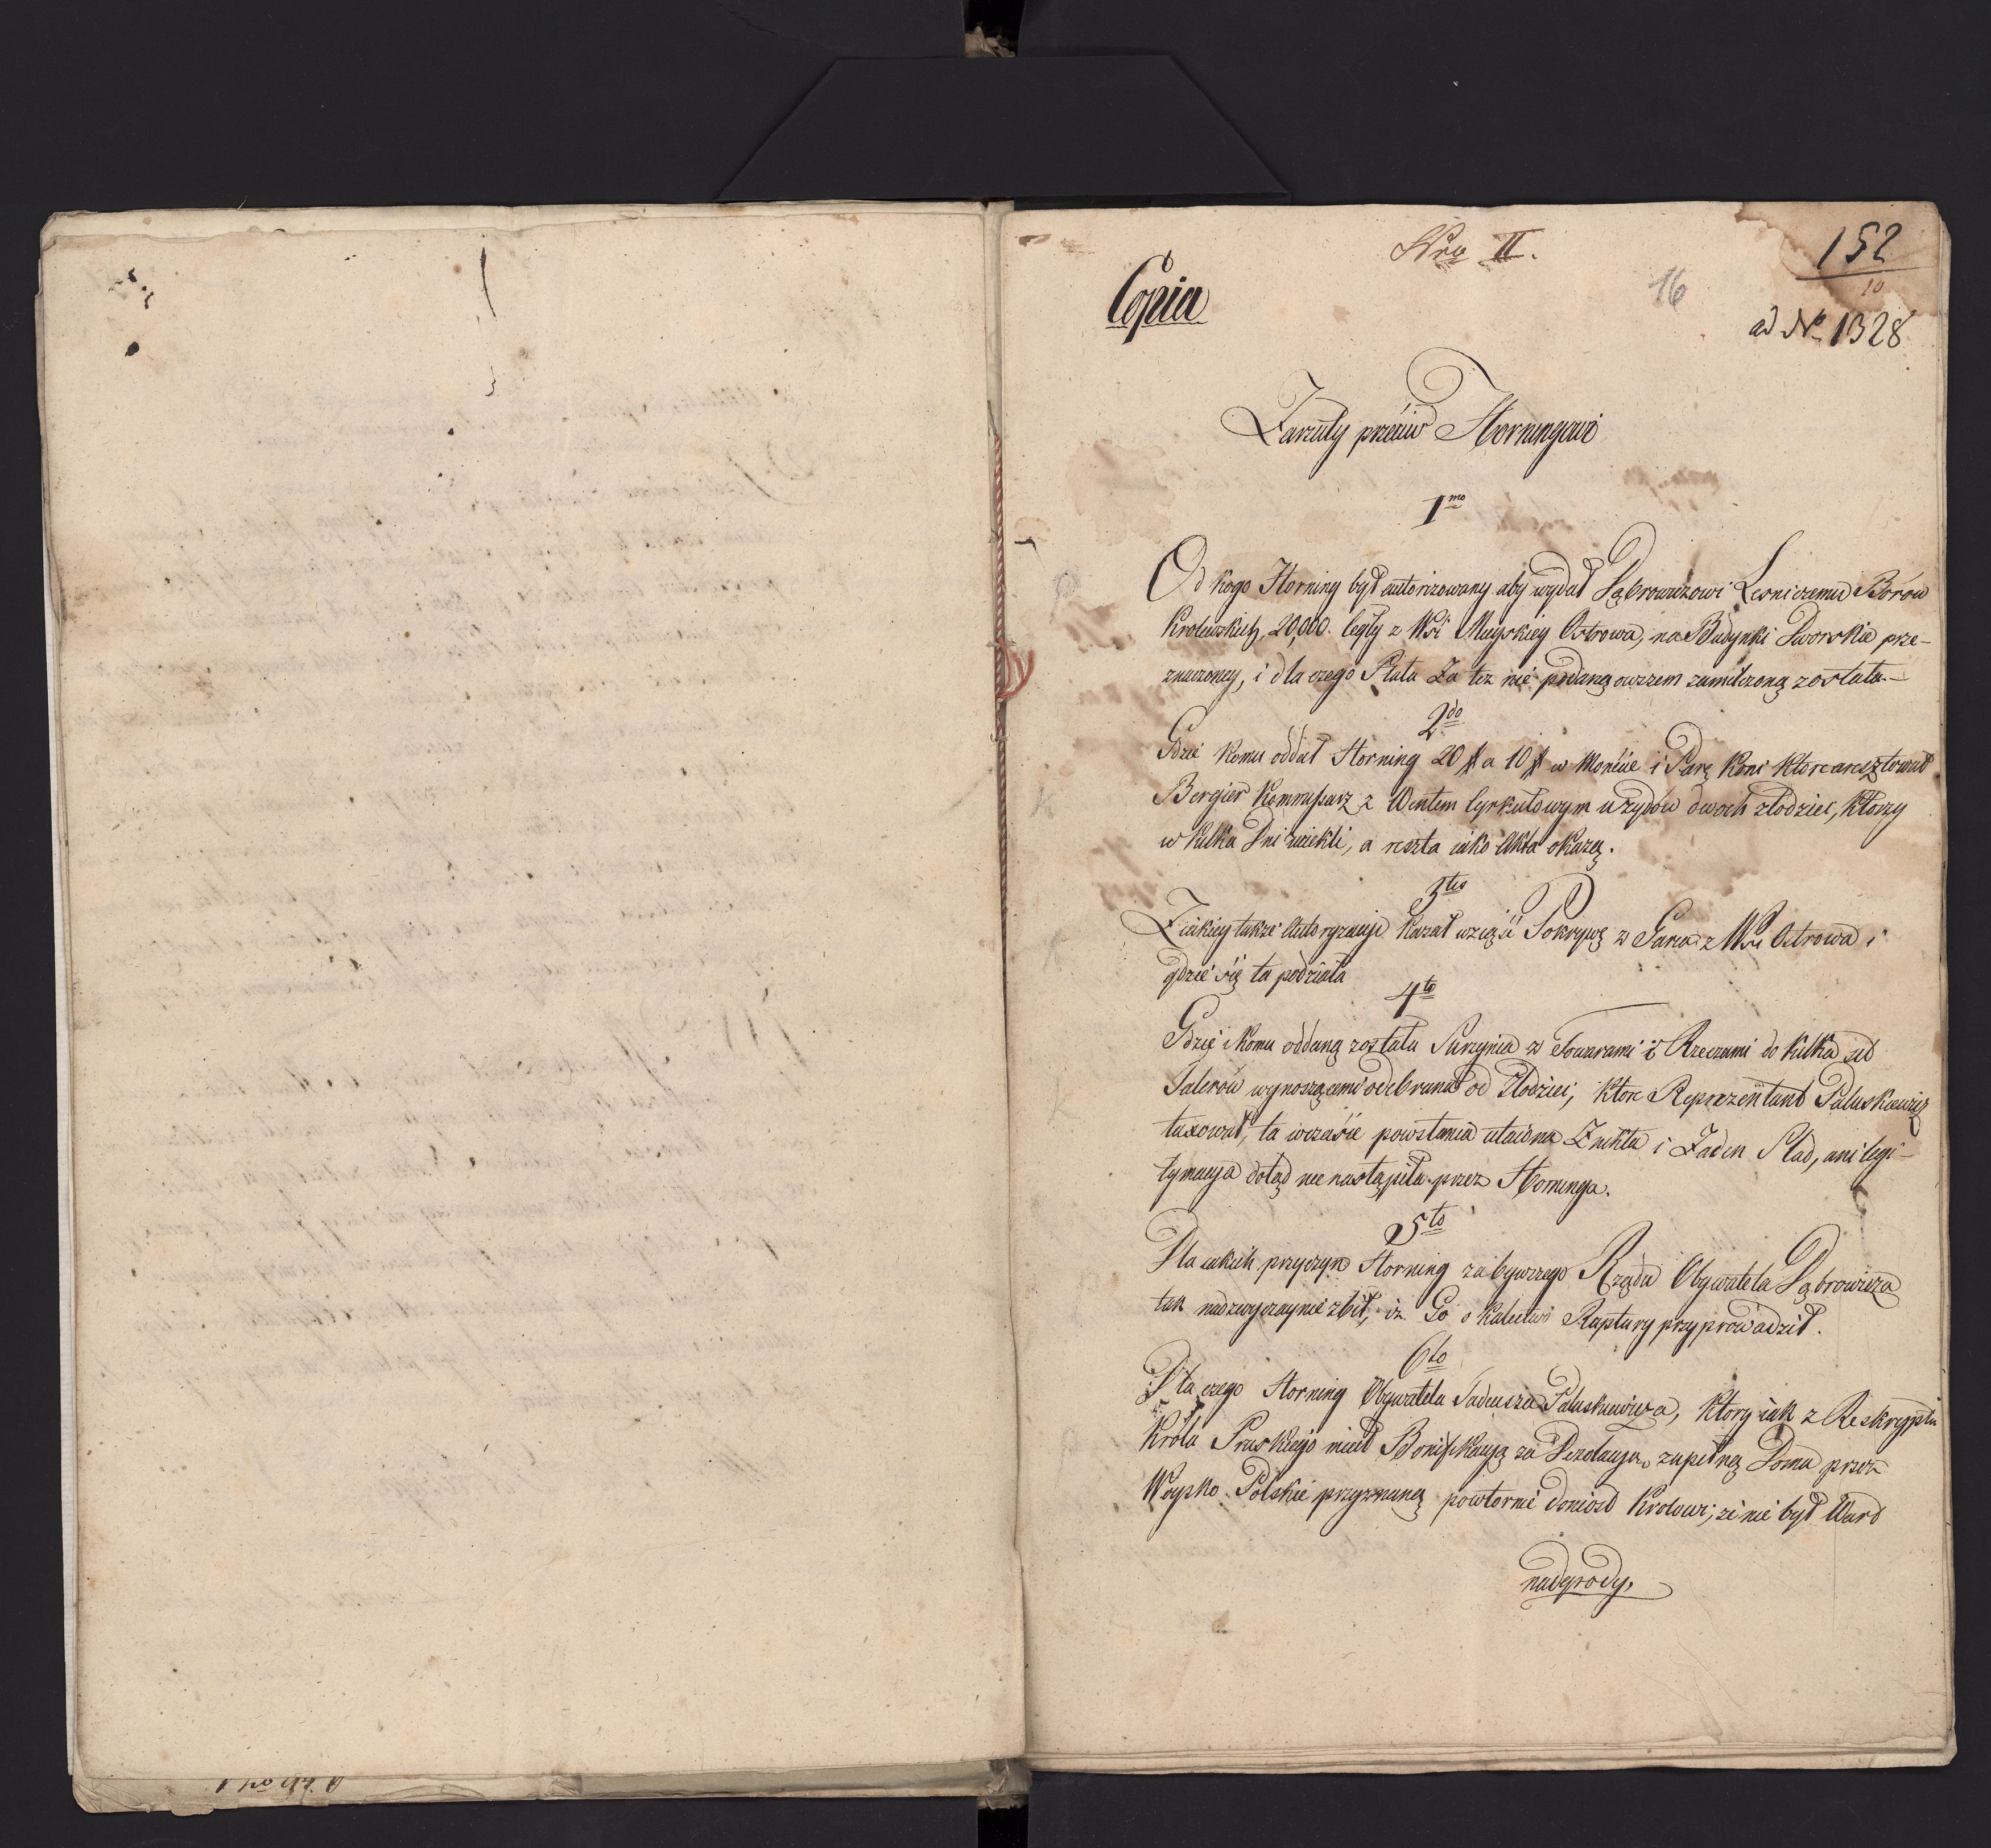 Nro II.
152
10
16
Copia
ad No 1328
Zarzuty przeciw Horningowi
1mo
Od kogo Horning był autorizowany aby wydał Dąbrowiczowi Lesniczemu Borów
Krolewskich, 20,000. Cegły z Wsi Mieyskiey Ostrowa, na Budynki Dworskie prze-
znaczoney, i dla czego Plata Za tez nie podaną owszem zamilczoną została.-
2do
Gdzie komu oddał Horning 20 # a 10 # w Monécie i Parę Koni które aresztował
Bergier Kommissarz z Wentem Cyrkułowym u zydów dwoch złodziei, którzy
w kilka Dni uciekli, a reszta iako Akta okażą.
3tio
Z iakiey także Autoryzacyi kazał wziąść Pokrywę z Garca z Wsi Ostrowa i
gdzie się ta podziała
4to
Gdzie i komu oddaną została Skrzynia z Towarami i Rzeczami do kilka set
Talerów wynoszącemi odebrana od Złodziei, które Reprezentant Paluskiewicz
taxował, ta wczasie powstania utaiona Znikła i Zaden Slad, ani legi-
tymacya dotąd nie nastąpiła przez Horninga.
5to
Dla iakich przyczyn Horning za bywszego Rządu Obywatela Dąbrowicza
tak nadzwyczaynie zbił, iz Go o kalectwo Ruptury przyprowadził.
6to
Dla czego Horning Obywatela Tadeusza Paluskiewicza, który iak z Reskryptu
Króla Pruskiego miał Bonifikacyą za Dezolacyą zupełną Domu przez
Woysko Polskie przyznaną powtornie doniosł Krolowi, ze nie był Ward
nadgrody,